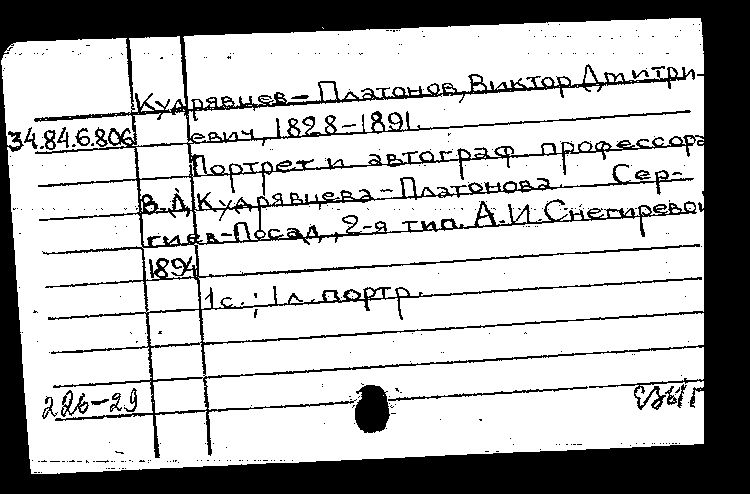 Кудрявцев-Платонов, Виктор Дмитри-
34.84.6.806 евич, 1828-1891.
Портрет и автограф профессора
В.Д. Кудрявцева-Платонова. Сер-
гиев-Посад, 2-я тип. А.И. Снегиревой
1894.
1 с.; 1 л. портр.
226-29